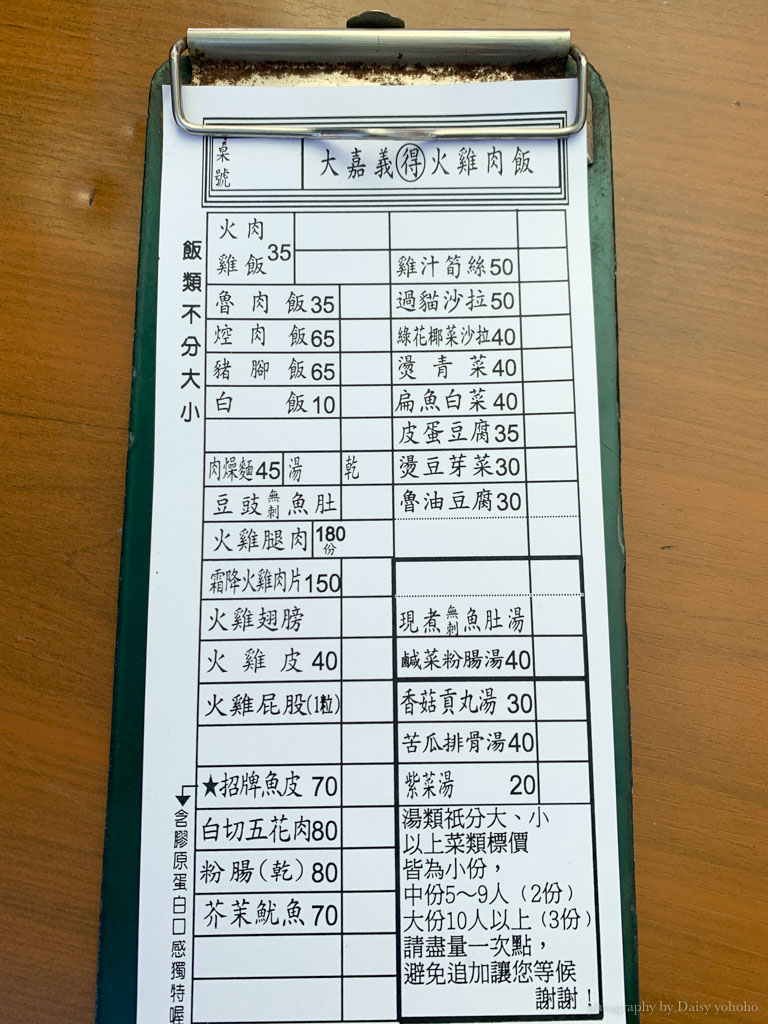 桌號
大嘉義得火雞肉飯
飯類不分大小
火雞肉飯35
魯肉飯35
焢肉飯65
豬腳飯65
白飯10
肉燥麵45 湯 乾
豆豉無刺魚肚
火雞腿肉 180份
霜降火雞肉片150
火雞翅膀
火雞皮40
火雞屁股(1粒)
★招牌魚皮 70
含膠原蛋白口感獨特喔
白切五花肉80
粉腸(乾)80
芥茉魷魚70
雞汁筍絲50
過貓沙拉50
綠花椰菜沙拉40
燙青菜40
扁魚白菜40
皮蛋豆腐35
燙豆芽菜30
魯油豆腐30
現煮無刺魚肚湯
鹹菜粉腸湯40
香菇貢丸湯 30
苦瓜排骨湯40
紫菜湯 20
湯類衹分大、小
以上菜類標價
皆為小份，
中份5～9人（2份）
大份10人以上（3份）
請盡量一次點，
避免追加讓您等候
謝謝！
Photography by Daisy yohoho